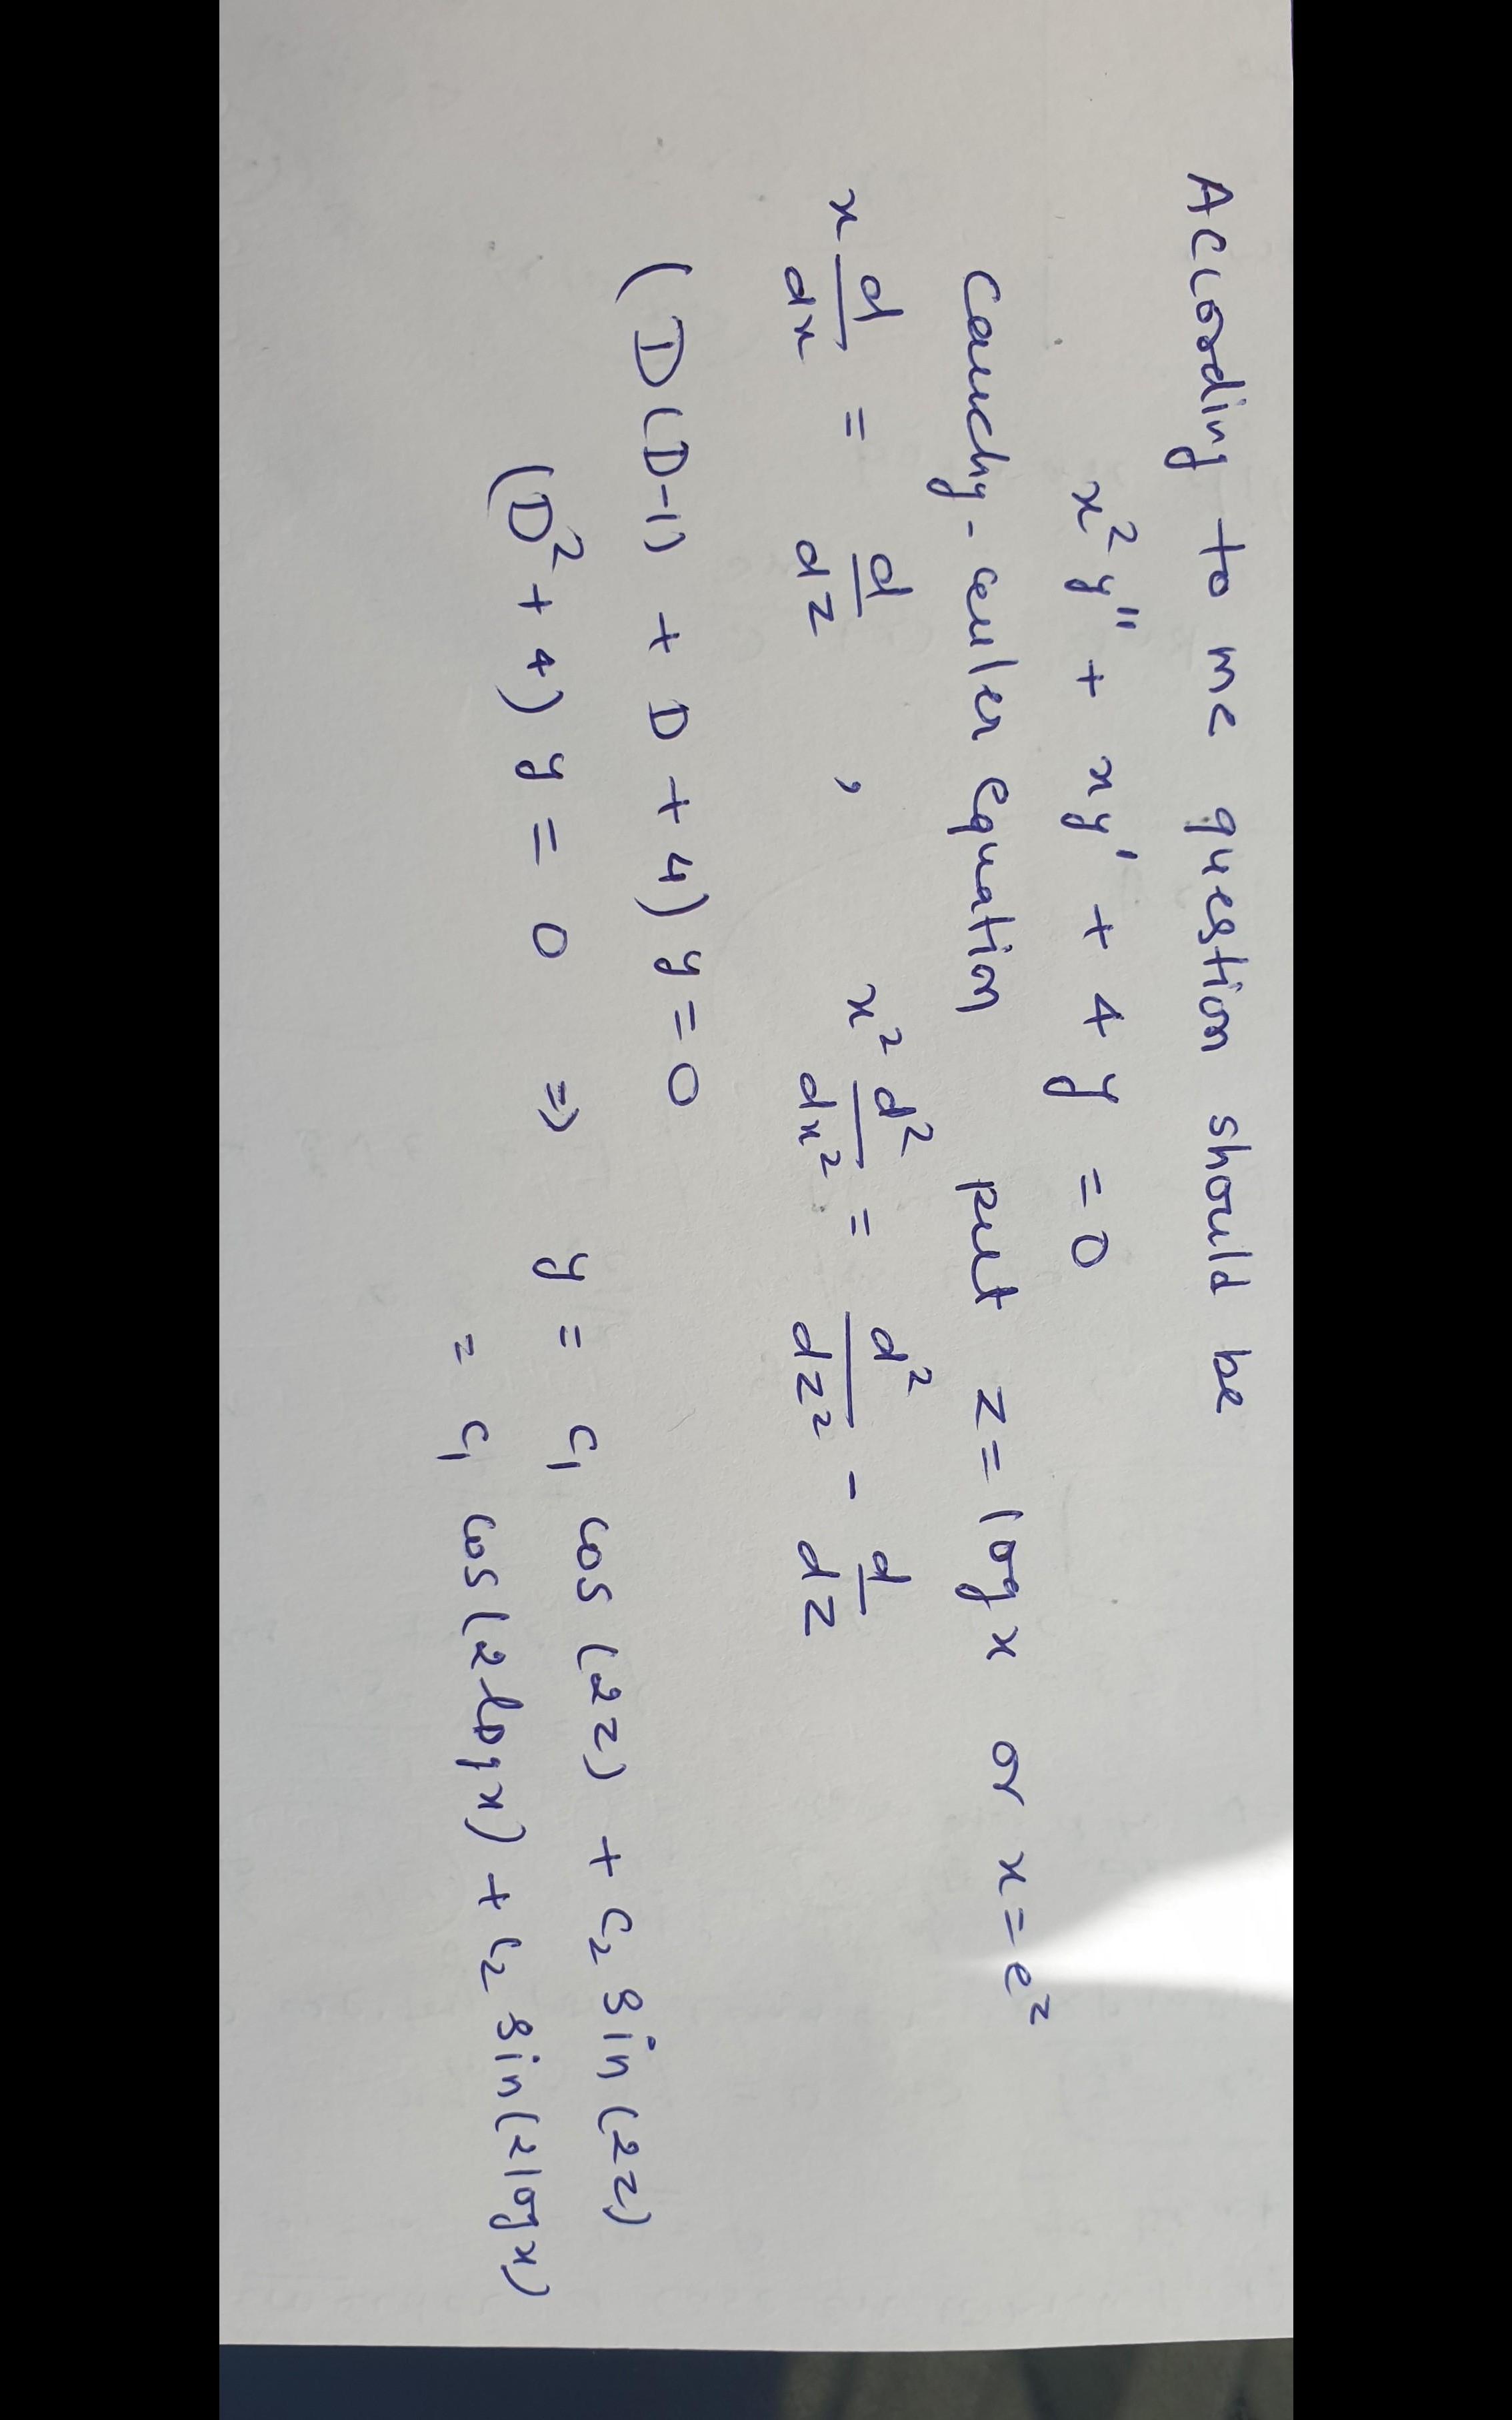 According to me question should be
x² y'' + xy' + 4 y = 0
Cauchy-euler equation put z = log x or x = e^z
x d/dx = d/dz , x² d²/dx² = d²/dz² - d/dz
(D(D-1) + D + 4) y = 0
(D² + 4) y = 0 ⇒ y = c₁ cos (2z) + c₂ sin (2z)
= c₁ cos(2 log x) + c₂ sin(2 log x)